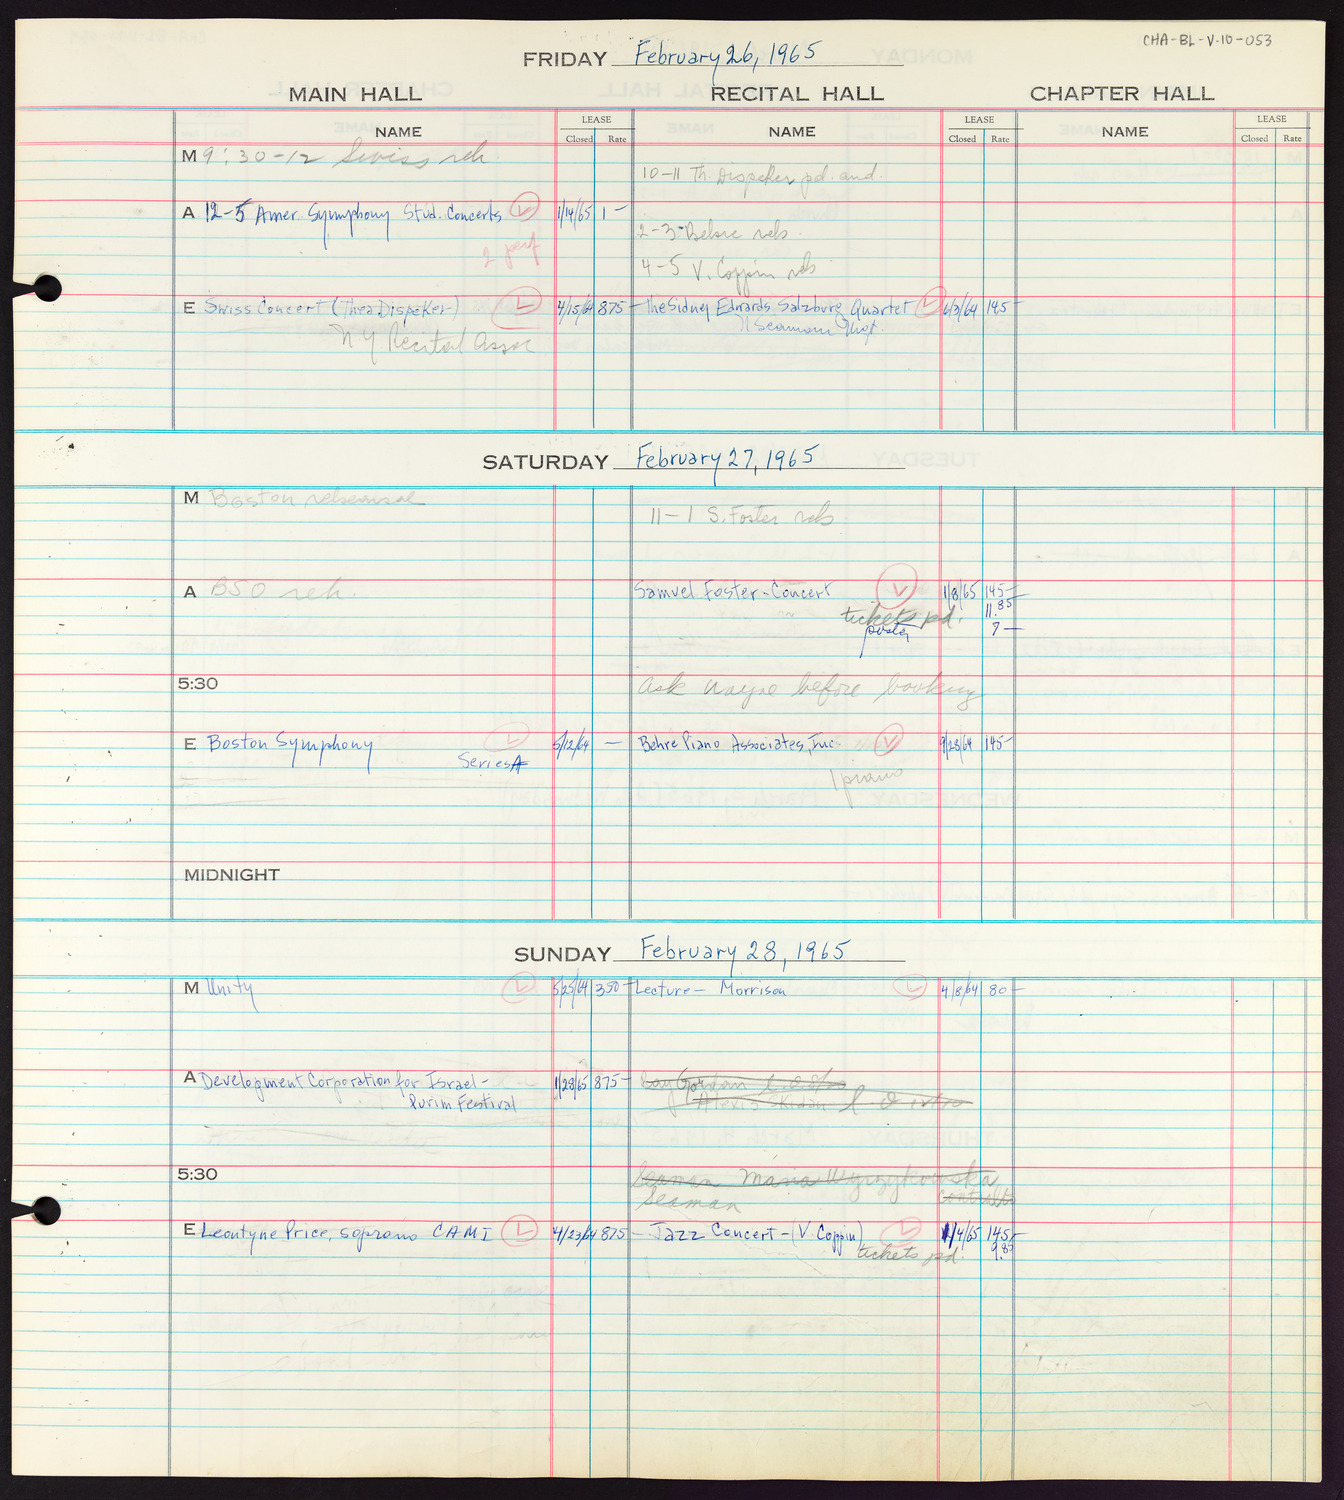 CHA-BL-V-10-053
FRIDAY February 26, 1965
MAIN HALL RECITAL HALL CHAPTER HALL
NAME LEASE NAME LEASE NAME LEASE
Closed Rate Closed Rate Closed Rate
M 9:30-12 Swiss reh
10-11 Th. Dispeker pd. aud.
A 12-5 Amer. Symphony Stud. Concerts L 1/14/65 1 —
2 perf
2-3 Behre reh.
4-5 V. Coppin reh
E Swiss Concert (Thea Dispeker) L 4/15/64 875 — The Sidney Edwards Salzburg Quartet L 6/3/64 145 —
Seamon Mgt.
NY Recital Assoc
SATURDAY February 27, 1965
M Boston rehearsal
11-1 S. Foster reh
A BSO reh. Samuel Foster-Concert L 1/8/65 145 —
tickets pd. 11.85
poster 7 —
5:30 ask Wayne before booking
E Boston Symphony L 5/12/64 — Behre Piano Associates, Inc. L 9/28/64 145 —
Series A
1 piano
MIDNIGHT
SUNDAY February 28, 1965
M Unity L 5/25/64 350 — Lecture — Morrison L 4/8/64 80 —
A Development Corporation for Israel- 1/28/65 875 — Gordan
Purim Festival Alexis
5:30 Seaman Maria Wyrzykowska
Seaman contralto
E Leontyne Price, soprano CAMI L 4/23/64 875 — Jazz Concert - (V. Coppin) L 1/4/65 145 —
tickets pd. 9.85